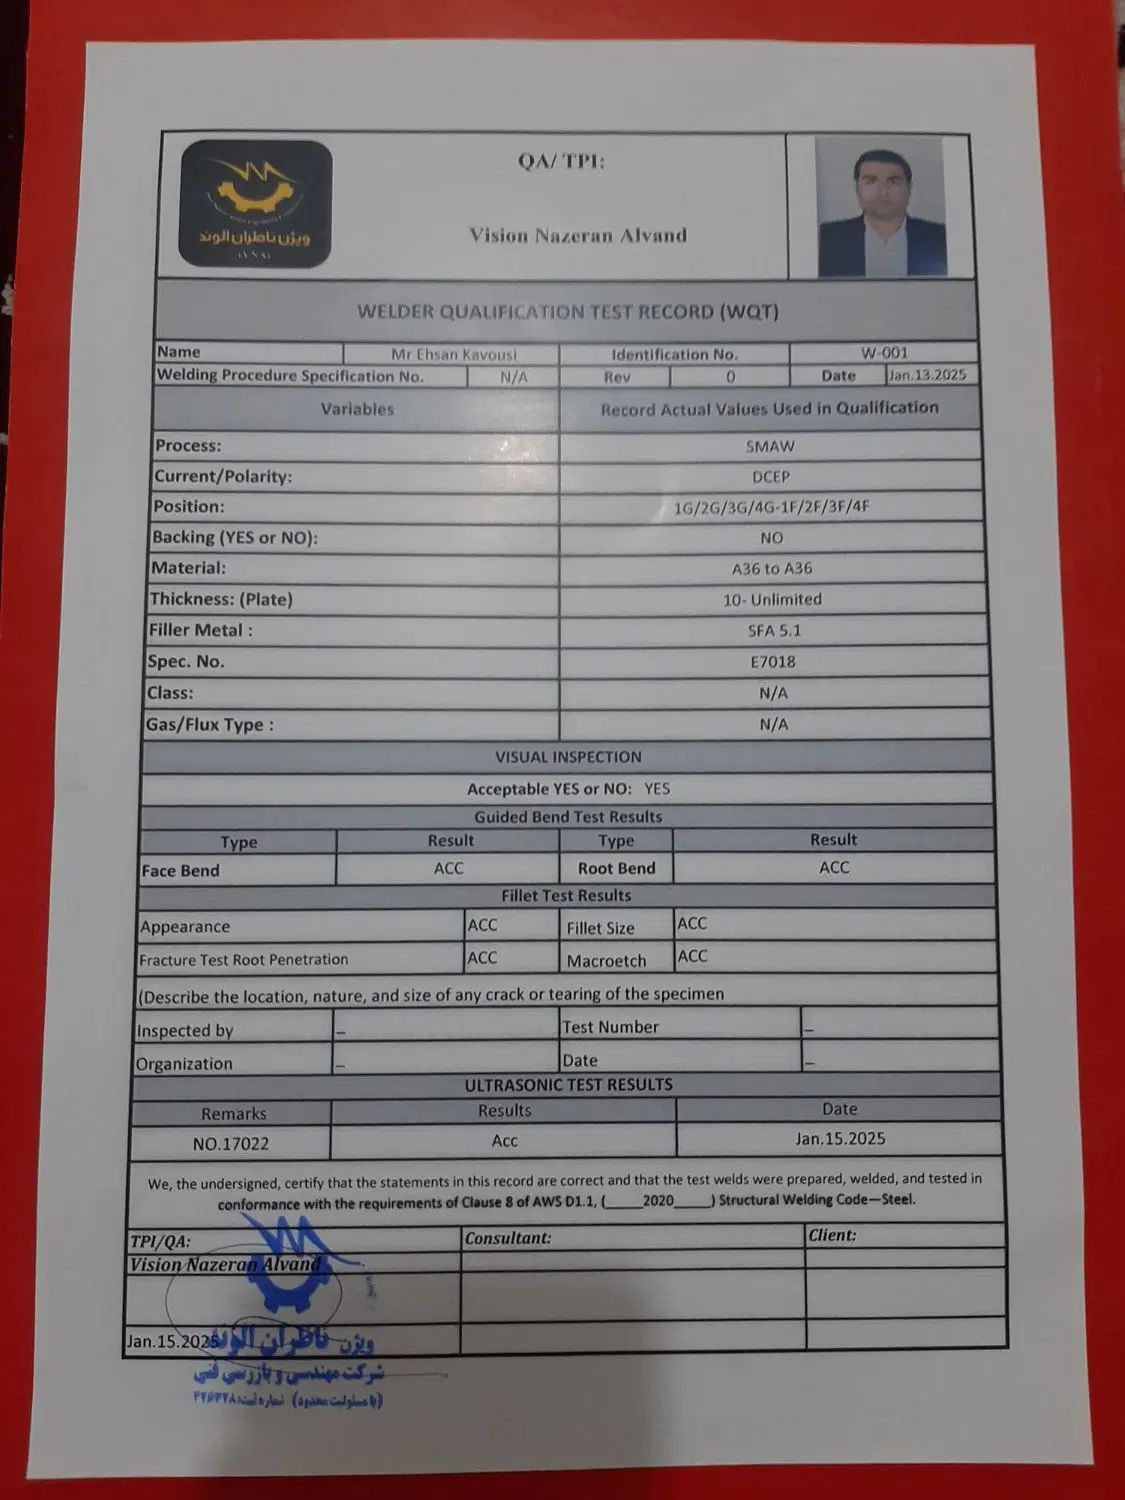 ویژن ناظران الوند
QA/ TPI:
Vision Nazeran Alvand
WELDER QUALIFICATION TEST RECORD (WQT)
Name Mr Ehsan Kavousi Identification No. W-001
Welding Procedure Specification No. N/A Rev 0 Date Jan.13.2025
Variables Record Actual Values Used in Qualification
Process: SMAW
Current/Polarity: DCEP
Position: 1G/2G/3G/4G-1F/2F/3F/4F
Backing (YES or NO): NO
Material: A36 to A36
Thickness: (Plate) 10- Unlimited
Filler Metal : SFA 5.1
Spec. No. E7018
Class: N/A
Gas/Flux Type : N/A
VISUAL INSPECTION
Acceptable YES or NO: YES
Guided Bend Test Results
Type Result Type Result
Face Bend ACC Root Bend ACC
Fillet Test Results
Appearance ACC Fillet Size ACC
Fracture Test Root Penetration ACC Macroetch ACC
(Describe the location, nature, and size of any crack or tearing of the specimen
Inspected by _ Test Number _
Organization _ Date _
ULTRASONIC TEST RESULTS
Remarks Results Date
NO.17022 Acc Jan.15.2025
We, the undersigned, certify that the statements in this record are correct and that the test welds were prepared, welded, and tested in
conformance with the requirements of Clause 8 of AWS D1.1, (_____2020_____) Structural Welding Code—Steel.
TPI/QA: Consultant: Client:
Vision Nazeran Alvand
Jan.15.2025
ویژن ناظران الوند
شرکت مهندسی و بازرسی فنی
(با مسئولیت محدود) شماره ثبت: